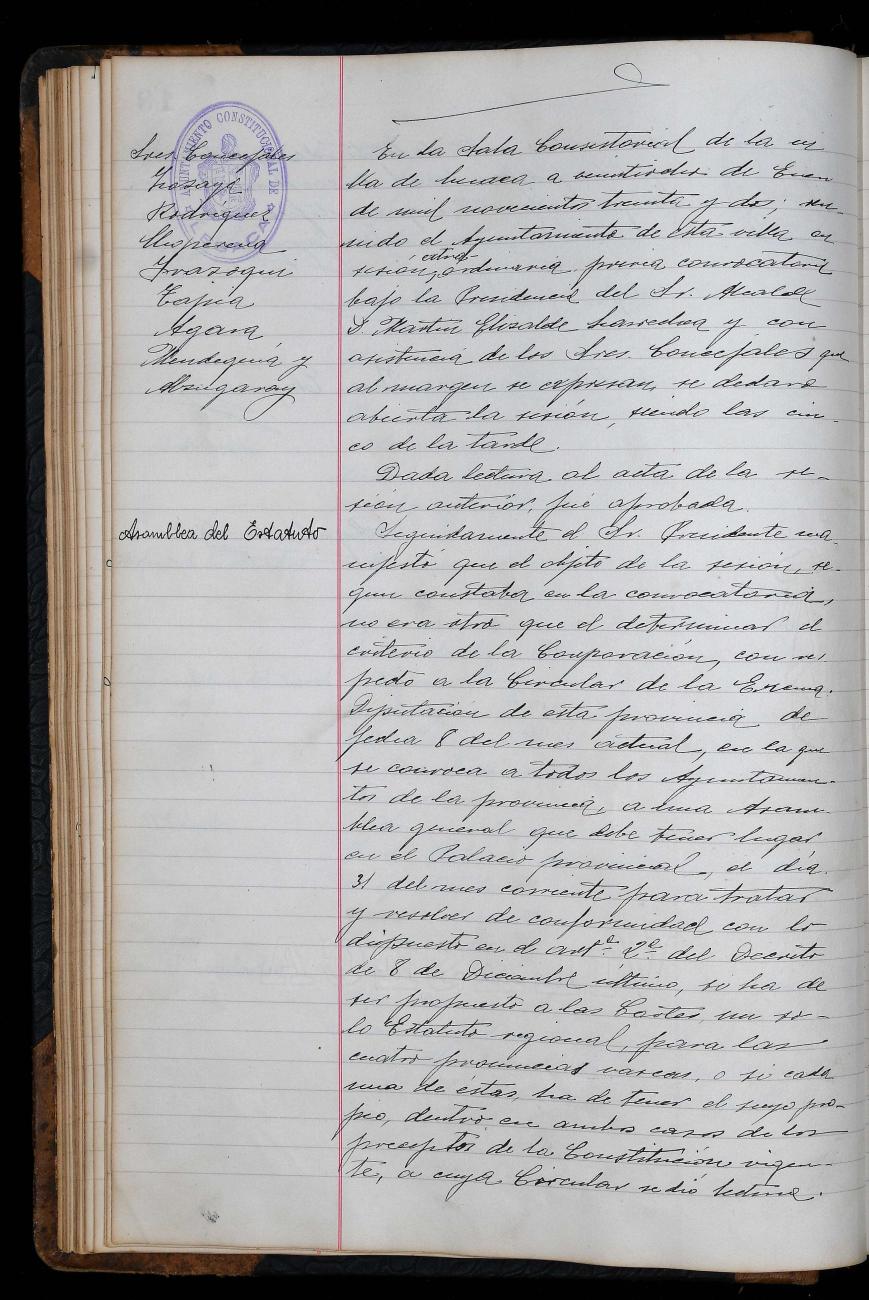 AYUNTAMIENTO CONSTITUCIONAL DE
LESACA
Sres. Concejales
Rodríguez
Irazoqui
Tapia
Agara
Mendeguía y
Alzugaray
Asamblea del Estatuto
En la Sala Consistorial de la vi
lla de Lesaca a veintiocho de Enero
de mil novecientos treinta y dos; reu-
nido el Ayuntamiento de esta villa en
sesión, extraordinaria previa convocatoria
bajo la Presidencia del Sr. Alcalde
D. Martin Elizalde y con
asistencia de los Sres. Concejales que
al margen se expresan, se declaró
abierta la sesión, siendo las cin-
co de la tarde.
Dada lectura al acta de la se-
sión anterior, fué aprobada.
Seguidamente el Sr. Presidente ma-
nifestó que el objeto de la sesión, se-
gun constaba en la convocatoria,
no era otro que el determinar el
criterio de la Corporación, con res
pecto a la Circular de la Excma.
Diputación de esta provincia de
fecha 8 del mes actual, en la que
se convoca a todos los Ayuntamien-
tos de la provincia, a una Asam-
blea general que debe tener lugar
en el Palacio provincial, el día
31 del mes corriente para tratar
y resolver de conformidad con lo
dispuesto en el artº 2º del Decreto
de 8 de Diciembre último, si ha de
ser propuesto a las Cortes, un so-
lo Estatuto regional, para las
cuatro provincias vascas, o si cada
una de estas, ha de tener el suyo pro-
pio, dentro en ambos casos de los
preceptos de la Constitución vigen-
te, a cuya Circular se dió lectura.